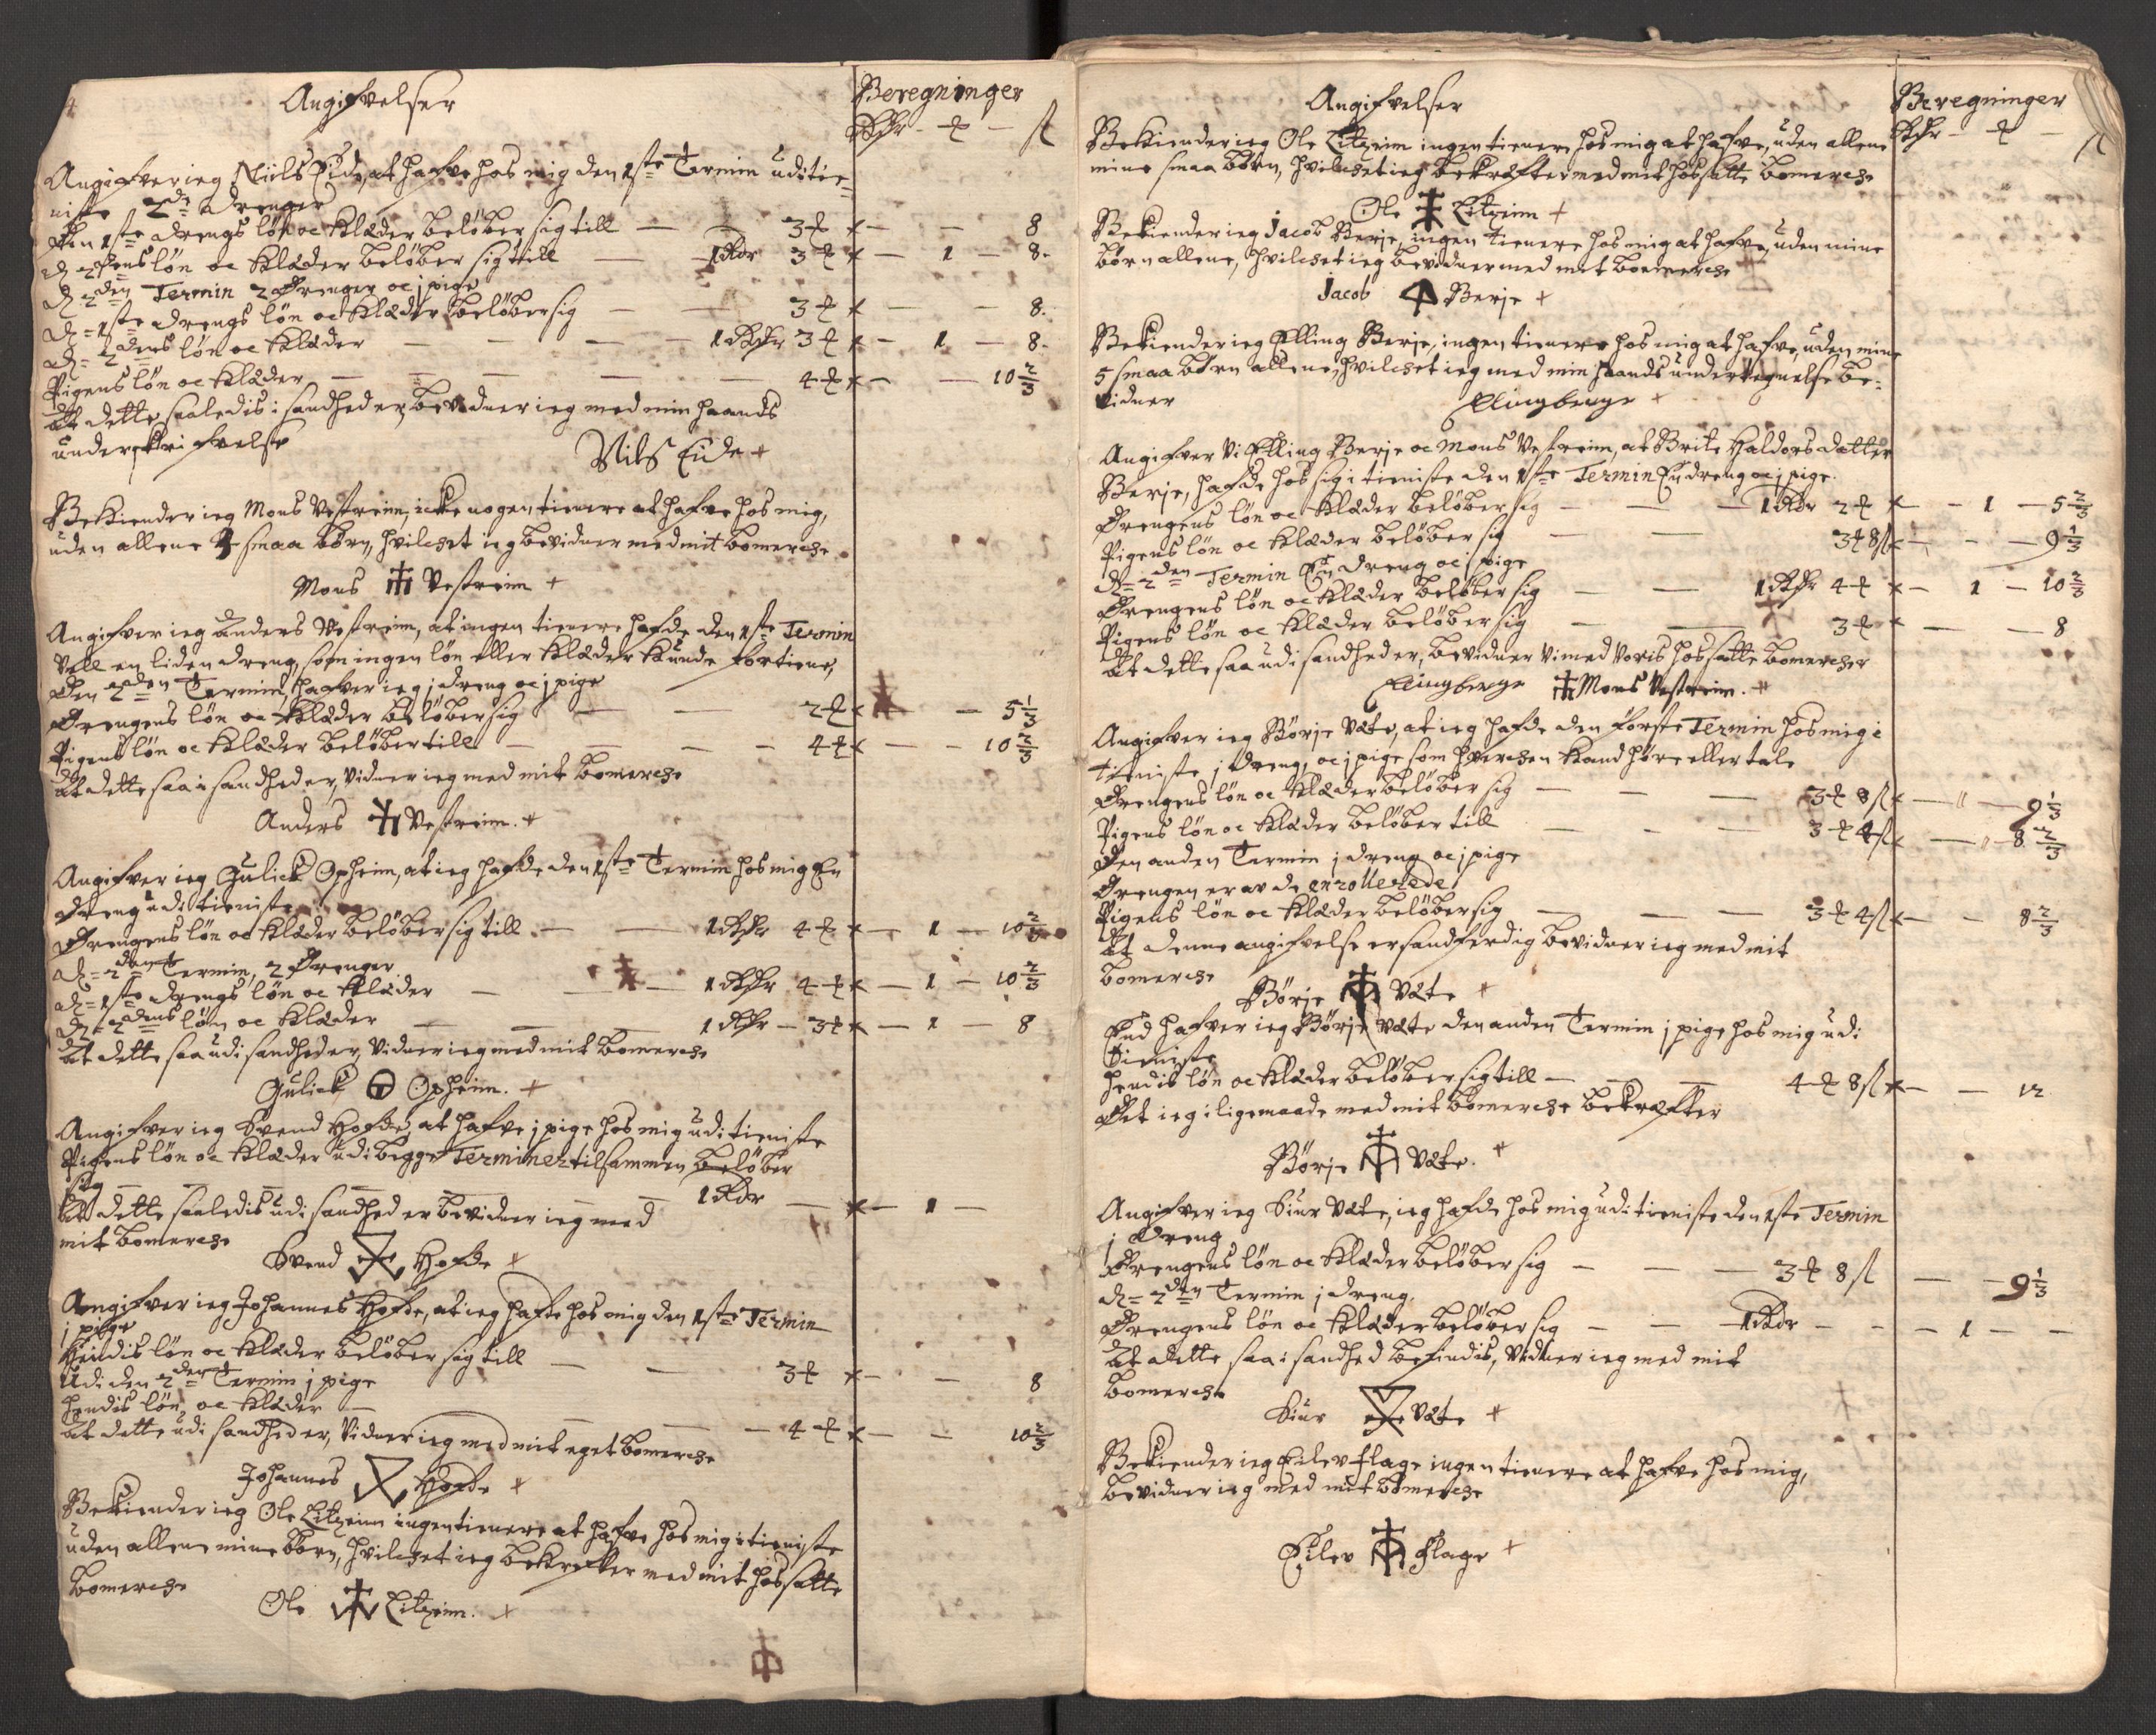 Angifvelser
Beregninger
Rdr - ₰ - ſl
Angifver ieg Niels Eide, at hafve hos mig den 1ste Termin udi tie-
niste 2de drenger
Den 1ste drengs løn oc Klæder beløber sig till — — 3 ₰ — — 8
d. 2dens løn oc Klæder beløber sig till — 1 Rdr 3 ₰ — 1 — 8.
d. 2den Termin 2 Drenger oc j pige
d. 1ste drengs løn oc Klæder beløber sig — — 3 ₰ — — 8.
d. 2dens løn oc Klæder — — — 1 Rdr 3 ₰ — 1 — 8.
Pigens løn oc Klæder — — — — 4 ₰ — — 10 2/3
At dette saaledis i sandhed er, bevidner ieg med min haands
underskrifvelse
Nils Eide +
Bekiender ieg Mons Vestreim, icke nogen tienere at hafve hos mig,
uden allene 3 smaa børn, hvilcket ieg bevidner med mit bomercke
Mons Vestreim +
Angifver ieg Anders Vestreim, at ingen tienere hafde den 1ste Termin
Vell en liden dreng, som ingen løn eller Klæder Kunde fortiene,
Den 2den Termin, hafver ieg j dreng oc j pige
Drengens løn oc Klæder beløber sig — — 2 ₰ — — 5 1/3
Pigens løn oc Klæder beløber till — — — 4 ₰ — — 10 2/3
At dette saa i sandhed er, Vidner ieg med mit bomercke
Anders Vestreim. +
Angifver ieg Gulick Opheim, at ieg hafde den 1ste Termin hos mig En
dreng udi tieniste
Drengens løn oc Klæder beløber sig till — — 1 Rdr 4 ₰ — 1 — 10 2/3
d. 2den Termin, 2 Drenger
d. 1ste drengs løn oc Klæder — — 1 Rdr 4 ₰ — 1 — 10 2/3
d. 2dens løn oc Klæder — — — 1 Rdr — 3 ₰ — 1 — 8
At dette saa udi sandhed er, Vidner ieg med mit bomercke
Gulick Opheim. +
Angifver ieg Svend Hofde, at hafve j pige hos mig udi tieniste
Pigens løn oc Klæder udi begge Terminer tilsammen beløber
sig — — — — — 1 Rdr — — 1 —
At dette saaledis udi sandhed er bevidner ieg med
mit bomercke
Svend Hofde +
Angifver ieg Johannes Hofde, at ieg hafde hos mig den 1ste Termin
j pige
Hendis løn oc Klæder beløber sig till — — 3 ₰ — — 8
Udi den 2den Termin j pige
hendis løn oc Klæder — — — — 4 ₰ — — 10 2/3
At dette udi sandhed er, Vidner ieg med mit eget bomercke
Johannes Hofde +
Bekiender ieg Ole Litzeim ingen tienere at hafve hos mig i tieniste
uden allene mine børn, hvilcket ieg bekrefter med mit hossatte
bomercke
Ole Litzeim. +
Angifvelser
Beregninger
Rdr - ₰ - ſl
Bekiender ieg Ole Litzeim ingen tienere hos mig at hafve, uden allene
mine smaa børn, hvilcket ieg bekræfter med mit hossatte bomercke
Ole Litzeim +
Bekiender ieg Jacob Berje, ingen tienere hos mig at hafve, uden mine
børn allene, hvilcket ieg bevidner med mit bomercke
Jacob Berje +
Bekiender ieg Elling Berje, ingen tienere hos mig at hafve, uden mine
5 smaa børn allene, hvilcket ieg med min haands undertegnelse be-
vidner
Ellingberge +
Angifver Vi Elling Berje oc Mons Vestreim, at Brite Haldorsdatter
Berje, hafde hos sig i tieniste den 1ste Termin En dreng oc j pige.
Drengens løn oc Klæder beløber sig — — — 1 Rdr 2 ₰ — 1 — 5 2/3
Pigens løn oc Klæder beløber sig — — 3 ₰ 8 ſl — — 9 1/3
d. 2den Termin En dreng oc j pige
Drengens løn oc Klæder beløber sig — — 1 Rdr 4 ₰ — 1 — 10 2/3
Pigens løn oc Klæder beløber sig — — 3 ₰ — — 8
At dette saa udi sandhed er, bevidner Vi med Voris hossatte bomercker
Ellingberge Mons Vestreim. +
Angifver ieg Børje Væte, at ieg hafde den første Termin hos mig i
tieniste j dreng, oc j pige som hvercken Kand høre eller tale
Drengens løn oc Klæder beløber sig — — — 3 ₰ 8 ſl — " — 9 1/3
Pigens løn oc Klæder beløber till — — — 3 ₰ 4 ſl — " — 8 2/3
Den anden Termin j dreng oc j pige
Drengen er av de enrollerede
Pigens løn oc Klæder beløber sig — — — 3 ₰ 4 ſl — — 8 2/3
At denne angifvelse er sandferdig bevidner ieg med mit
bomercke
Børje Væte +
End hafver ieg Børje Væte den anden Termin j pige hos mig udi
tieniste
hendis løn oc Klæder beløber sig till — — 4 ₰ 8 ſl — — 12
Det ieg i ligemaade med mit bomercke bekræfter
Børje Væte. +
Angifver ieg Siur Væte, ieg hafde hos mig udi tieniste den 1ste Termin
j Dreng
Drengens løn oc Klæder beløber sig — — — 3 ₰ 8 ſl — — 9 1/3
d. 2den Termin j dreng.
Drengens løn oc Klæder beløber sig — — 1 Rdr — — 1 — —
At dette saa i sandhed befindis, Vidner ieg med mit
bomercke
Siur Væte +
Bekiender ieg Eilev Flage ingen tienere at hafve hos mig,
bevidner ieg med mit bomercke
Eilev Flage +